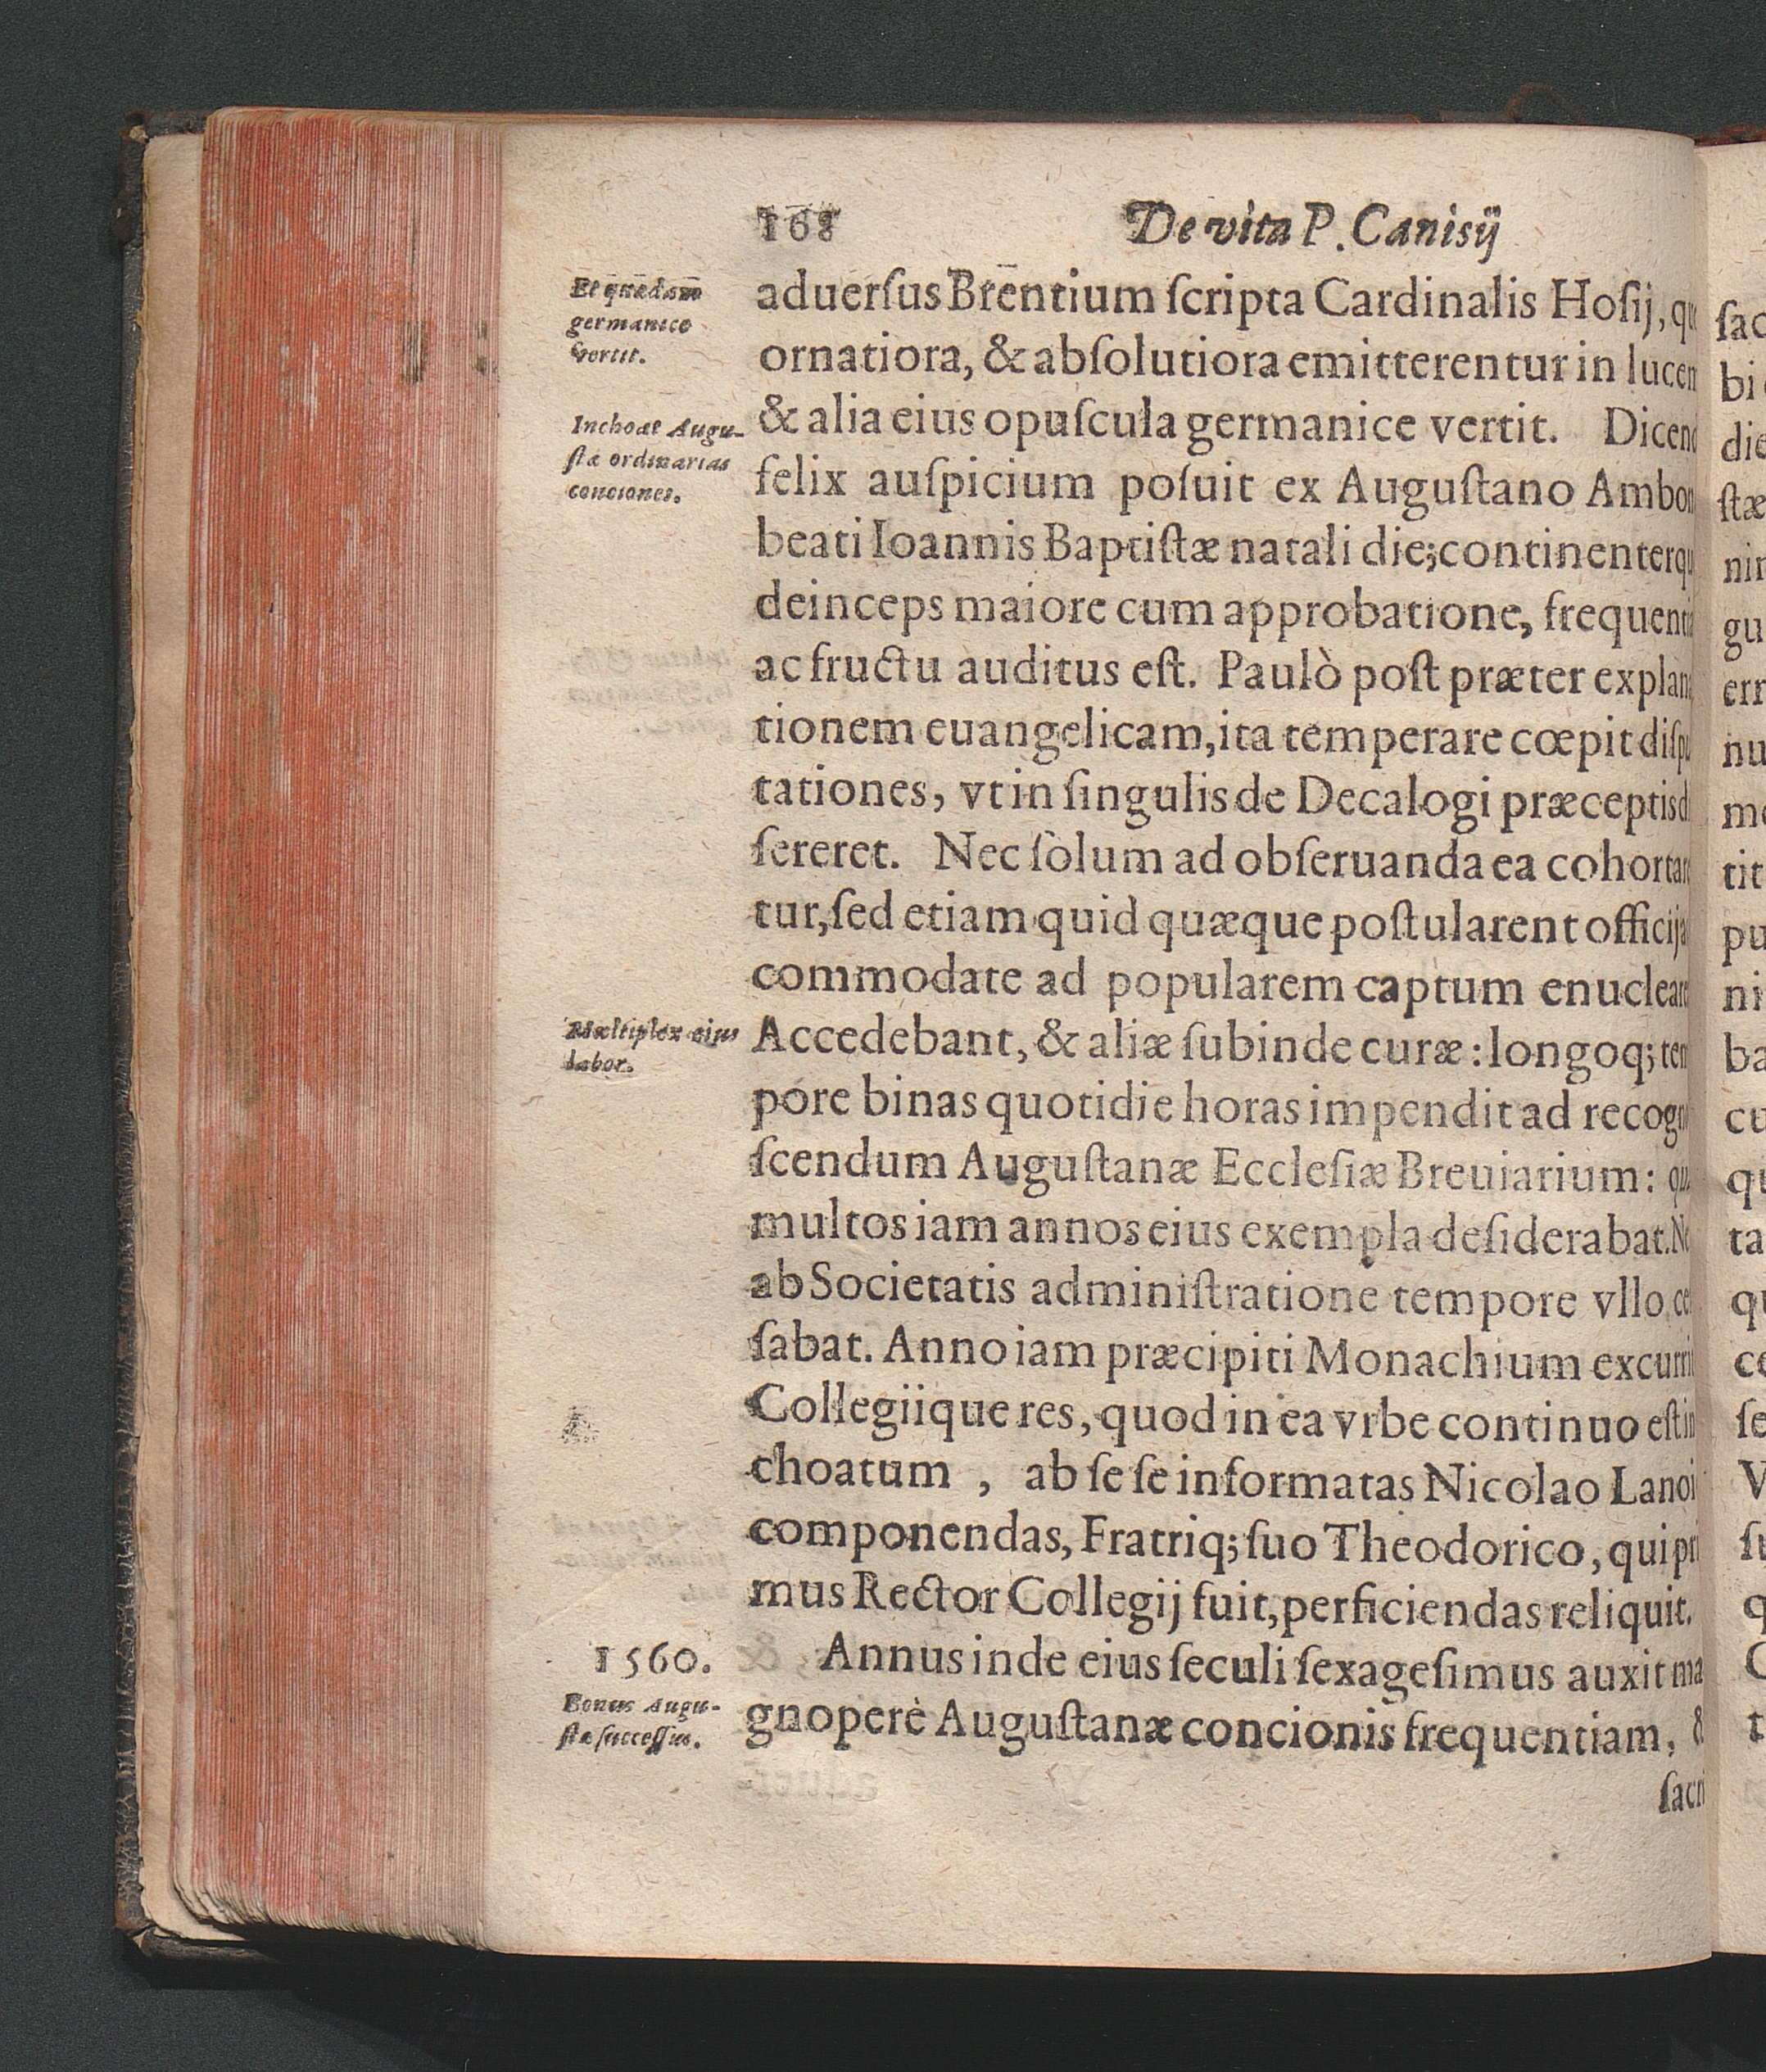 168 De vita P. Canisij
Et quædam
germanice
vertit.
Inchoat Augu-
stæ ordinarias
conciones.
Multiplex eius
labor.
1560.
Bonus Augu-
stæ successus.
aduerſus Brentium ſcripta Cardinalis Hoſij,
ornatiora, & abſolutiora emitterentur in lucem
& alia eius opuſcula germanice vertit. Dicend
felix auſpicium poſuit ex Auguſtano Ambon
beati Ioannis Baptiſtæ natali die; continenterqu
deinceps maiore cum approbatione, frequenti
ac fructu auditus eſt. Paulò poſt præter explana
tionem euangelicam, ita temperare cœpit diſpu
tationes, vt in ſingulis de Decalogi præceptis di
ſereret. Nec ſolum ad obſeruanda ea cohortare
tur, ſed etiam quid quæque poſtularent officij a
commodate ad popularem captum enuclear
Accedebant, & aliæ ſubinde curæ: longoq; tem
pore binas quotidie horas impendit ad recogn
ſcendum Auguſtanæ Eccleſiæ Breuiarium: qu
multos iam annos eius exempla deſiderabat. Ne
ab Societatis adminiſtratione tempore vllo ceſ
ſabat. Anno iam præcipiti Monachium excurrit
Collegiique res, quod in ea vrbe continuo eſt in
choatum , ab ſe ſe informatas Nicolao Lanoi
componendas, Fratriq; ſuo Theodorico, qui pri
mus Rector Collegij fuit, perficiendas reliquit.
Annus inde eius ſeculi ſexageſimus auxit ma
gnoperè Auguſtanæ concionis frequentiam, &
ſacri
ſac
bi
die
ſtæ
nin
gu
err
nu
me
tit
pu
ni
ba
cu
qu
ta
qu
ce
ſe
V
ſu
q
C
t